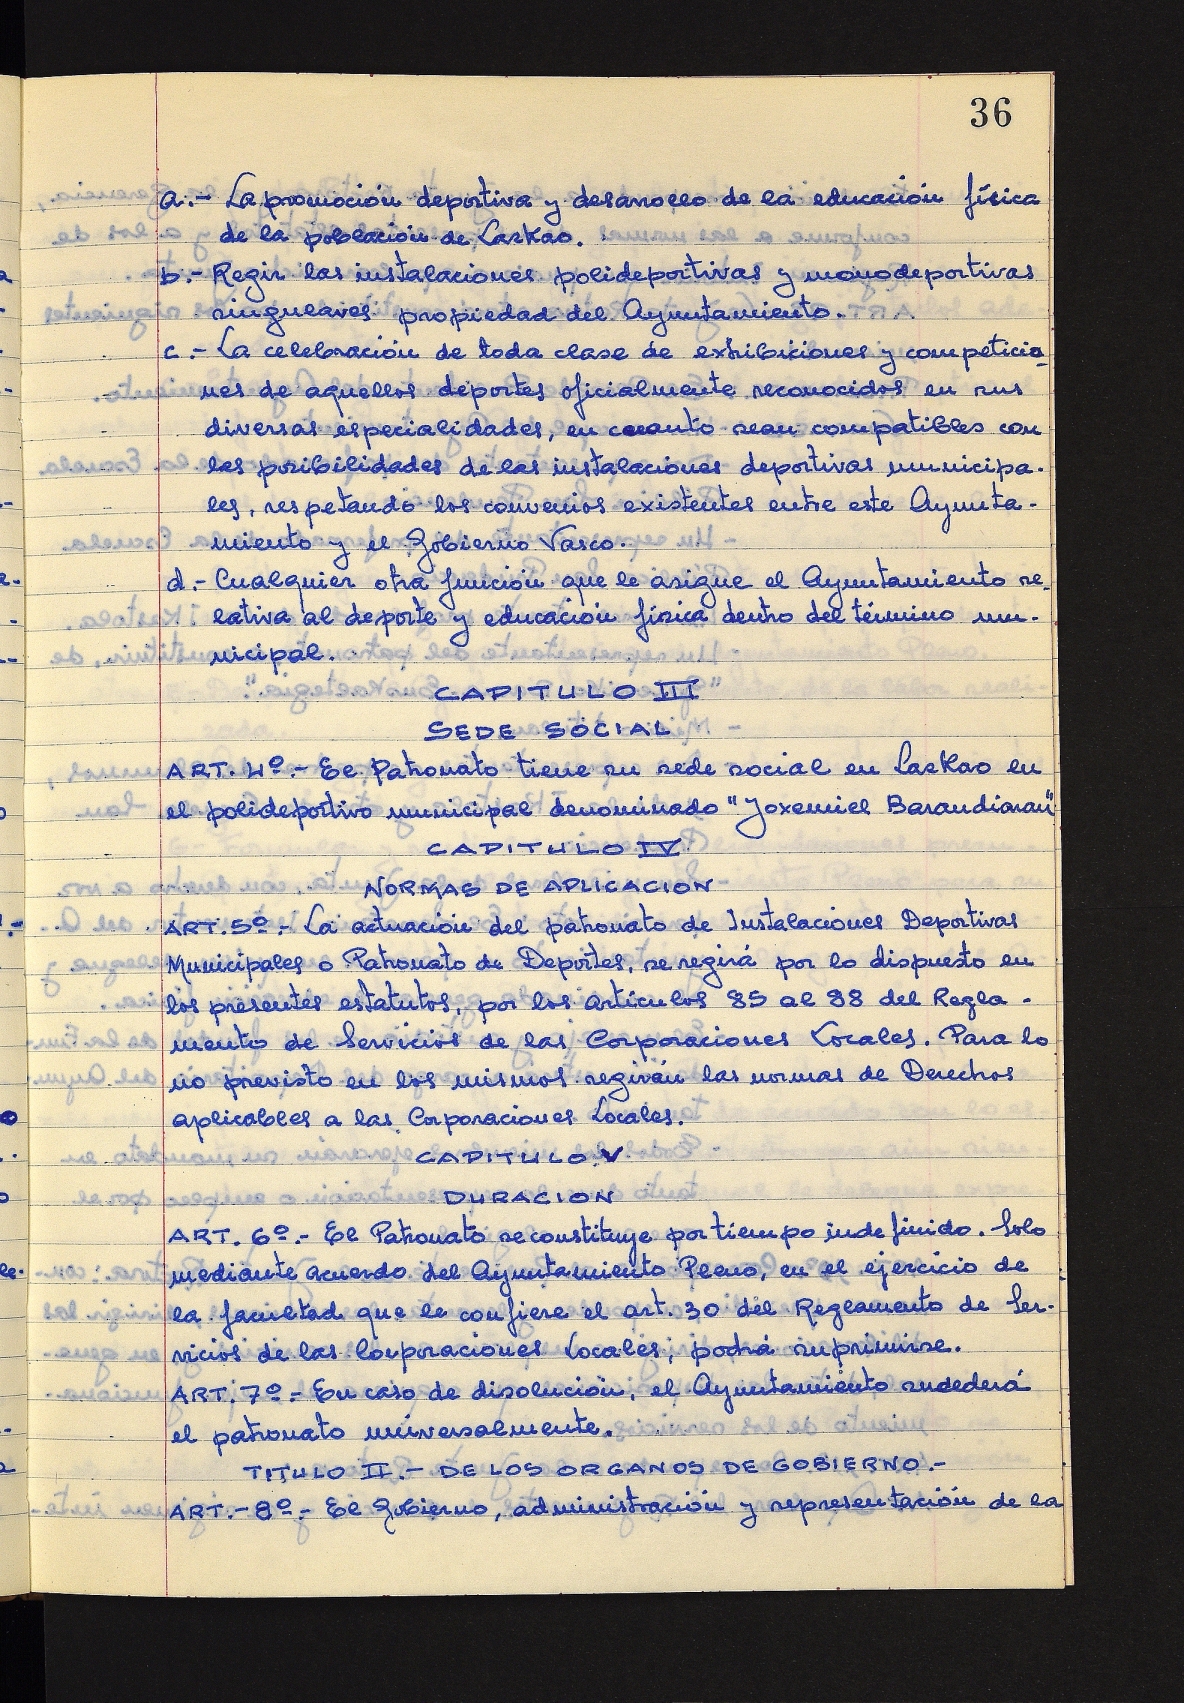 36
a.- La promoción deportiva y desarrollo de la educación física
de la población de Lazkao.
b.- Regir las instalaciones polideportivas y monodeportivas
singulares propiedad del Ayuntamiento.
c.- La celebración de toda clase de exhibiciones y competicio
nes de aquellos deportes oficialmente reconocidos en sus
diversas especialidades, en cuanto sean compatibles con
las posibilidades de las instalaciones deportivas municipa-
les, respetando los convenios existentes entre este Ayunta-
miento y el Gobierno Vasco.
d.- Cualquier otra función que le asigue el Ayuntamiento re-
lativa al deporte y educación física dentro del término mu-
nicipal.
CAPITULO III
SEDE SOCIAL
ART. 4º.- El Patronato tiene su sede social en Lazkao en
el polideportivo municipal denominado "Joxemiel Barandiaran"
CAPITULO IV
NORMAS DE APLICACION
ART. 5º.- La actuación del patronato de Instalaciones Deportivas
Municipales o Patronato de Deportes, se regirá por lo dispuesto en
los presentes estatutos, por los artículos 85 al 88 del Regla-
mento de Servicios de las Corporaciones Locales. Para lo
no previsto en los mismos regirán las normas de Derechos
aplicables a las Corporaciones Locales.
CAPITULO V
DURACION
ART. 6º.- El Patronato se constituye por tiempo indefinido. Solo
mediante acuerdo del Ayuntamiento Pleno, en el ejercicio de
la facultad que le confiere el art. 30 del Reglamento de Ser-
vicios de las Corporaciones Locales, podrá suprimirse.
ART. 7º.- En caso de disolución, el Ayuntamiento sudederá
el patronato universalmente.
TITULO II.- DE LOS ORGANOS DE GOBIERNO.-
ART.- 8º.- El Gobierno, administración y representación de la